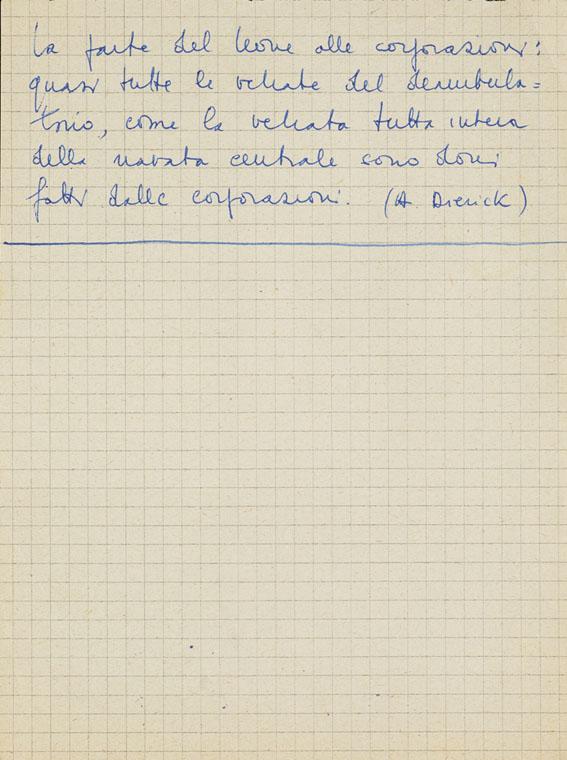 La parte del leone alle corporazioni:
quasi tutte le vetrate del deambula=
torio, come la vetrata tutta intera
della navata centrale sono doni
fatti dalle corporazioni. (A. Dierick)